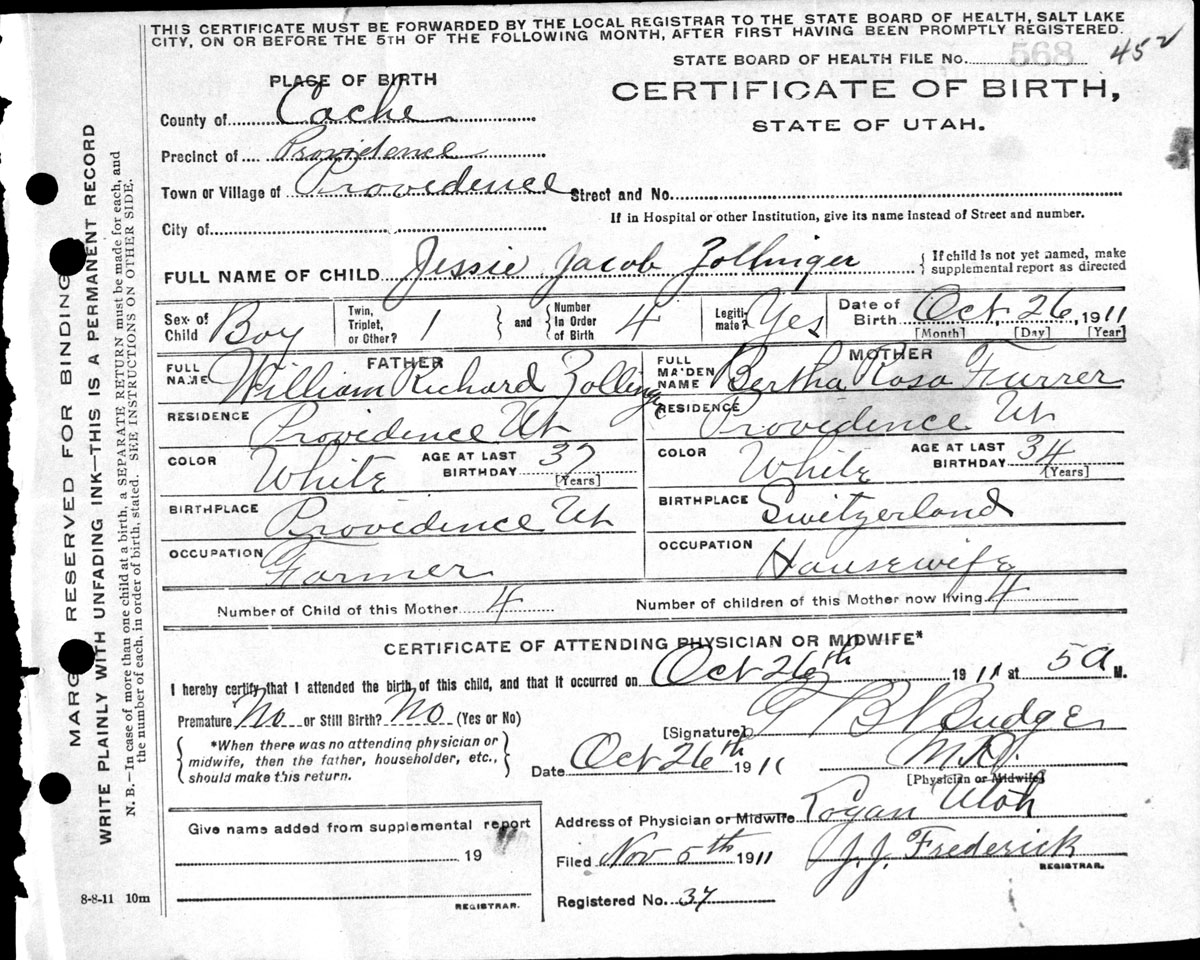 THIS CERTIFICATE MUST BE FORWARDED BY THE LOCAL REGISTRAR TO THE STATE BOARD OF HEALTH, SALT LAKE
CITY, ON OR BEFORE THE 5TH OF THE FOLLOWING MONTH, AFTER FIRST HAVING BEEN PROMPTLY REGISTERED.
STATE BOARD OF HEALTH FILE No. 568 452
PLACE OF BIRTH
CERTIFICATE OF BIRTH,
STATE OF UTAH.
County of Cache
Precinct of Providence
Town or Village of Providence Street and No.
If in Hospital or other Institution, give its name instead of Street and number.
City of
FULL NAME OF CHILD Jessie Jacob Zollinger { If child is not yet named, make
supplemental report as directed
Sex of Child Boy Twin, Triplet, or Other? 1 and Number In Order of Birth 4 Legiti-mate? Yes Date of Birth Oct, 26, 1911
[Month] [Day] [Year]
FATHER MOTHER
FULL NAME William Richard Zollinger FULL MAIDEN NAME Bertha Rosa Furrer
RESIDENCE Providence Ut RESIDENCE Providence Ut
COLOR White AGE AT LAST BIRTHDAY 37 [Years] COLOR White AGE AT LAST BIRTHDAY 34 [Years]
BIRTHPLACE Providence Ut BIRTHPLACE Switzerland
OCCUPATION Farmer OCCUPATION Housewife
Number of Child of this Mother 4 Number of children of this Mother now living 4
CERTIFICATE OF ATTENDING PHYSICIAN OR MIDWIFE*
I hereby certify that I attended the birth of this child, and that it occurred on Oct 26th 1911 at 5 a M.
Premature No or Still Birth? No (Yes or No)
[Signature] B Budge
*When there was no attending physician or
midwife, then the father, householder, etc.,
should make this return.
Date Oct 26th 1911 M.D.
[Physician or Midwife]
Address of Physician or Midwife Logan Utah
Give name added from supplemental report
19
REGISTRAR.
Filed Nov 5th 1911 J.J. Frederick
REGISTRAR.
Registered No. 37
8-8-11 10m
MARG RESERVED FOR BINDING
WRITE PLAINLY WITH UNFADING INK—THIS IS A PERMANENT RECORD
N. B.—In case of more than one child at a birth, a SEPARATE RETURN must be made for each, and
the number of each, in order of birth, stated. SEE INSTRUCTIONS ON OTHER SIDE.